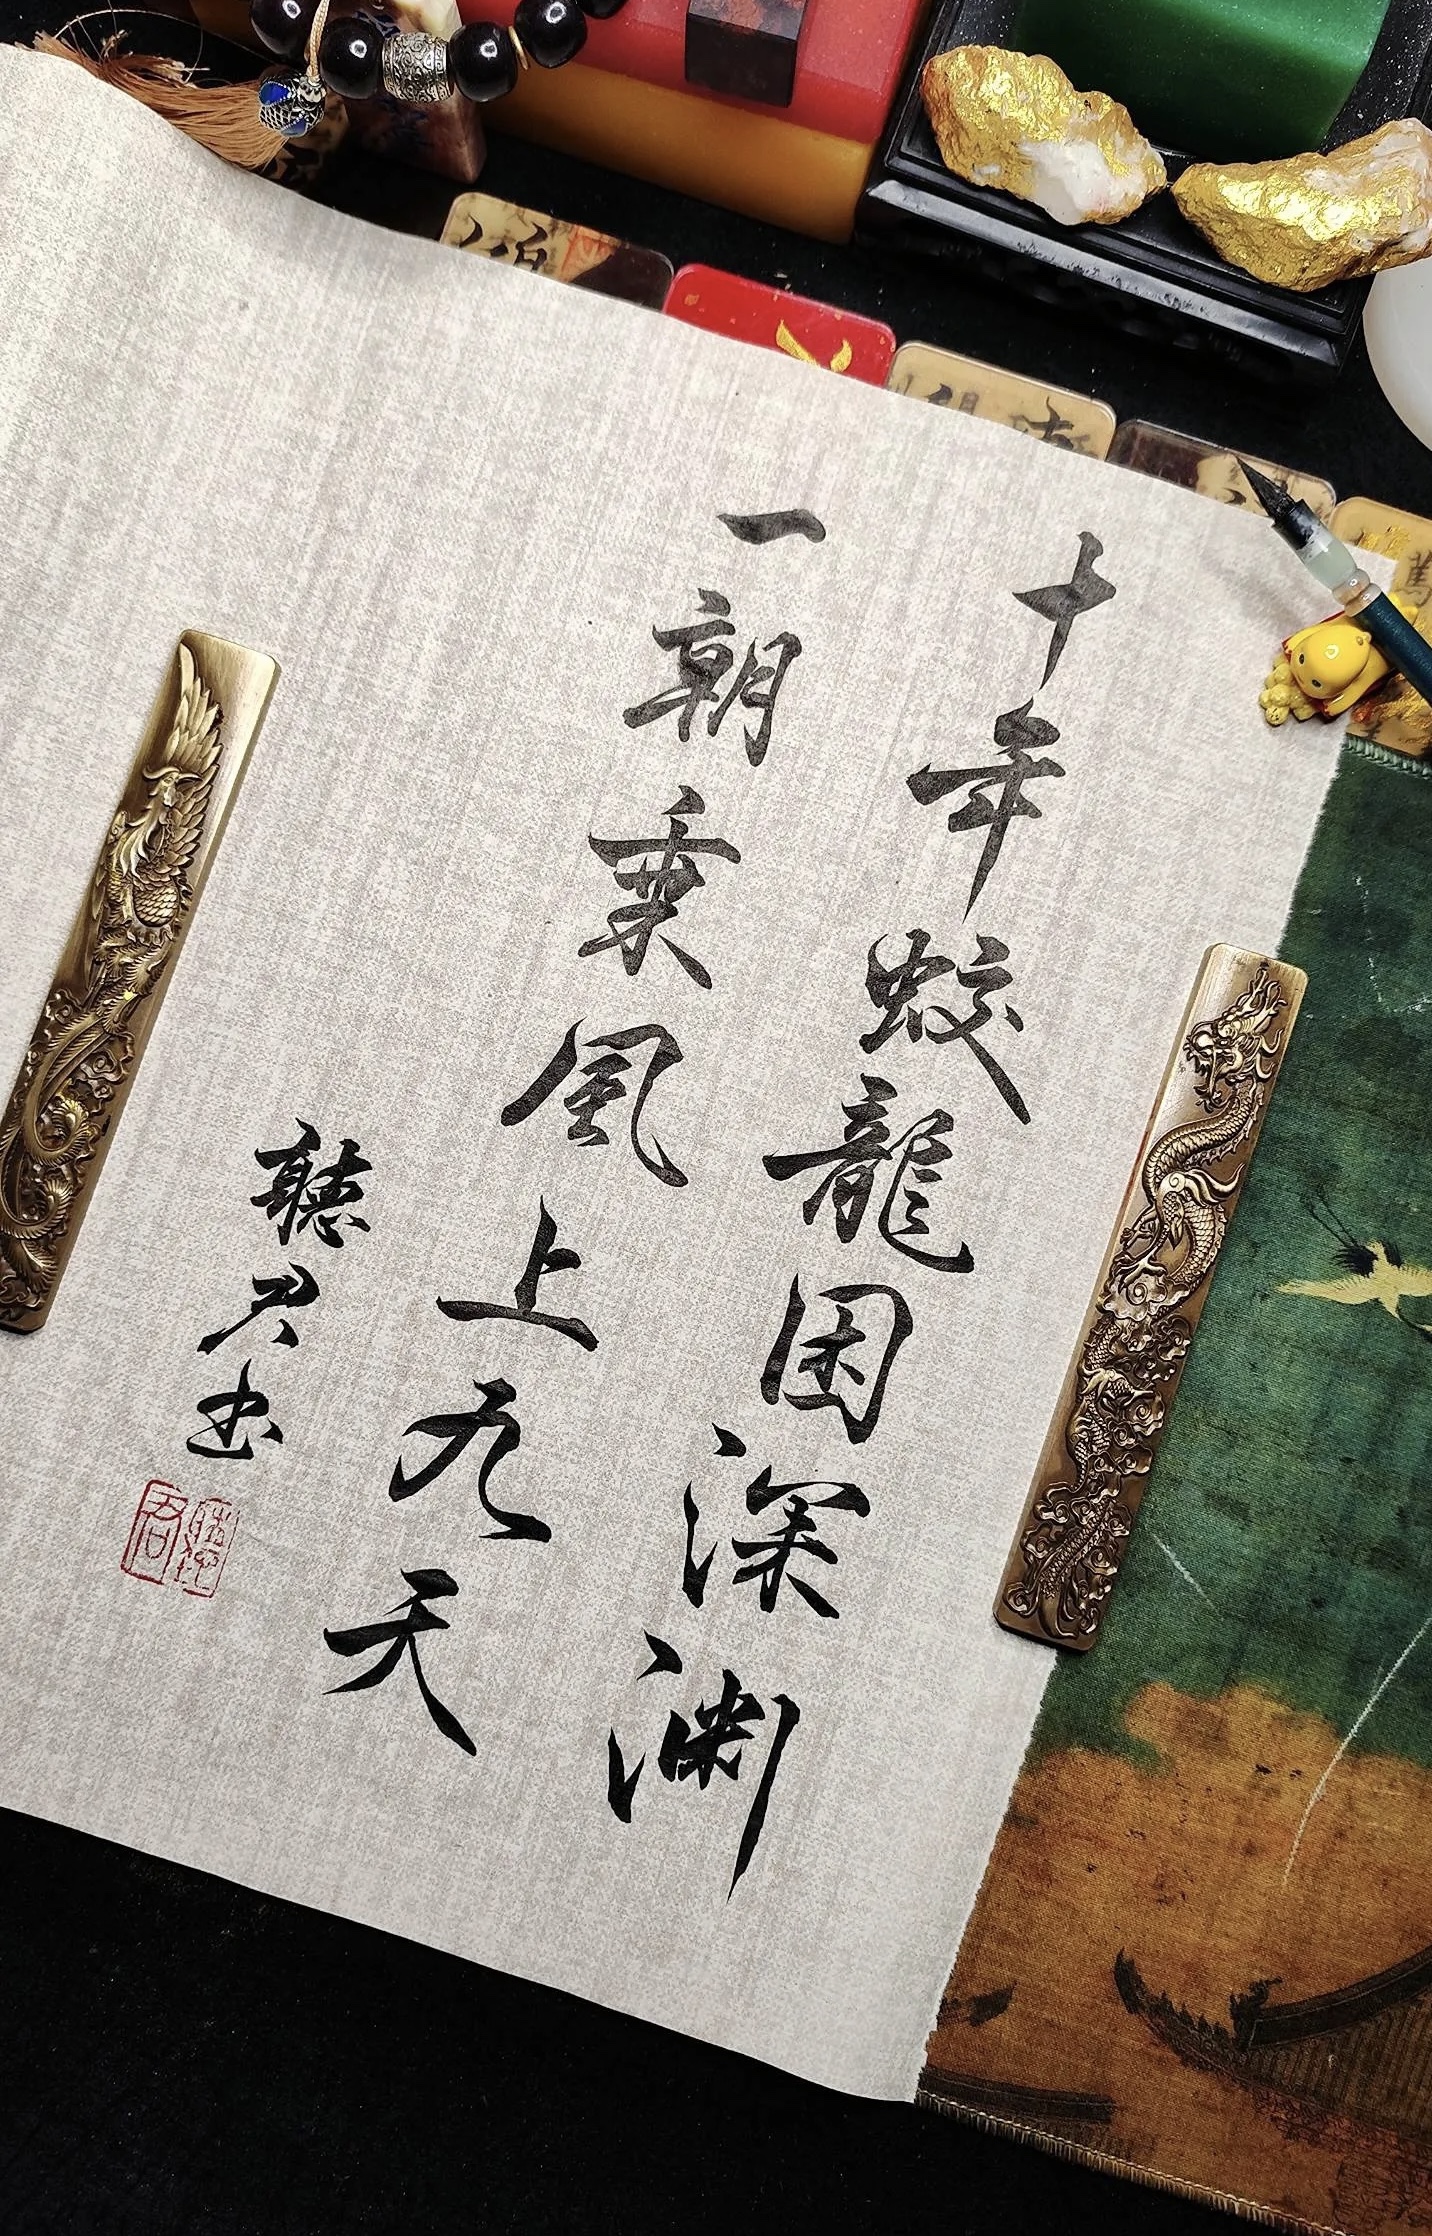 十年蛟龍困深渊
一朝乗風上九天
聽君书